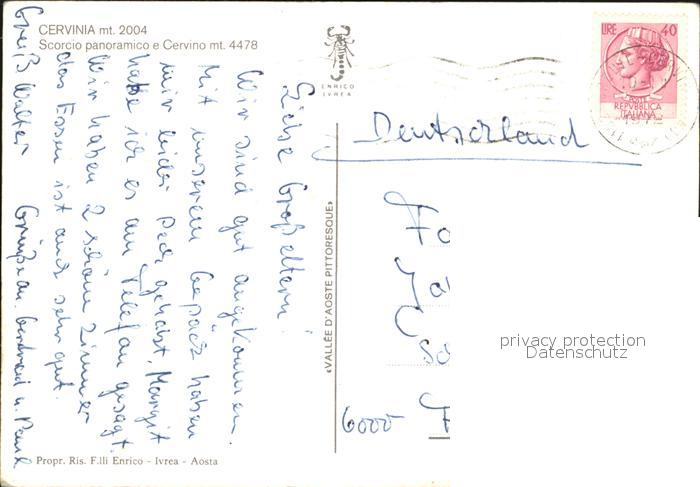 CERVINIA mt. 2004
Scorcio panoramico e Cervino mt. 4478
ENRICO
IVREA
LIRE 40
POSTE
REPVBBLICA
ITALIANA
Deutschland
Fo
Ja
6000 F
«VALLÉE D'AOSTE PITTORESQUE»
privacy protection
Datenschutz
Liebe Großeltern!
Wir sind gut angekommen.
Mit unserem Gepäck haben
wir leider Pech gehabt, Margit
habe ich es am Telefon gesagt.
Wir haben 2 schöne Zimmer
das Essen ist auch sehr gut.
Gruß Walter Grüße an
Propr. Ris. F.lli Enrico - Ivrea - Aosta